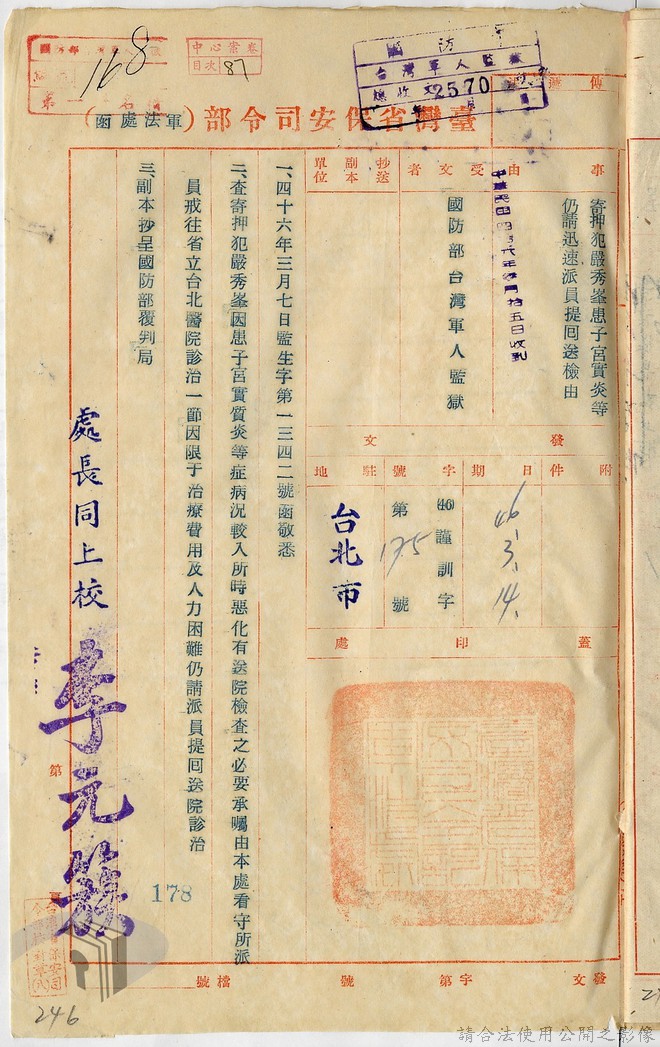 168
中心案卷
目次 87
國防部
台灣軍人監獄
總收文 2570
臺灣省保安司令部(軍法處函)
事由
寄押犯嚴秀峯患子宮實炎等
仍請迅速派員提囘送檢由
受文者
國防部台灣軍人監獄
抄送副本單位
發文
附件
日期
46.3.14.
字號
(46)謹訓字
第175號
駐地
台北市
蓋印處
一、四十六年三月七日監生字第一三四二號函敬悉
二、查寄押犯嚴秀峯因患子宮實質炎等症病況較入所時惡化有送院檢查之必要承囑由本處看守所派
員戒往省立台北醫院診治一節因限于治療費用及人力困難仍請派員提囘送院診治
三、副本抄呈國防部覆判局
處長同上校
李元簇
178
發文
字第
號
檔號
246
請合法使用公開之影像